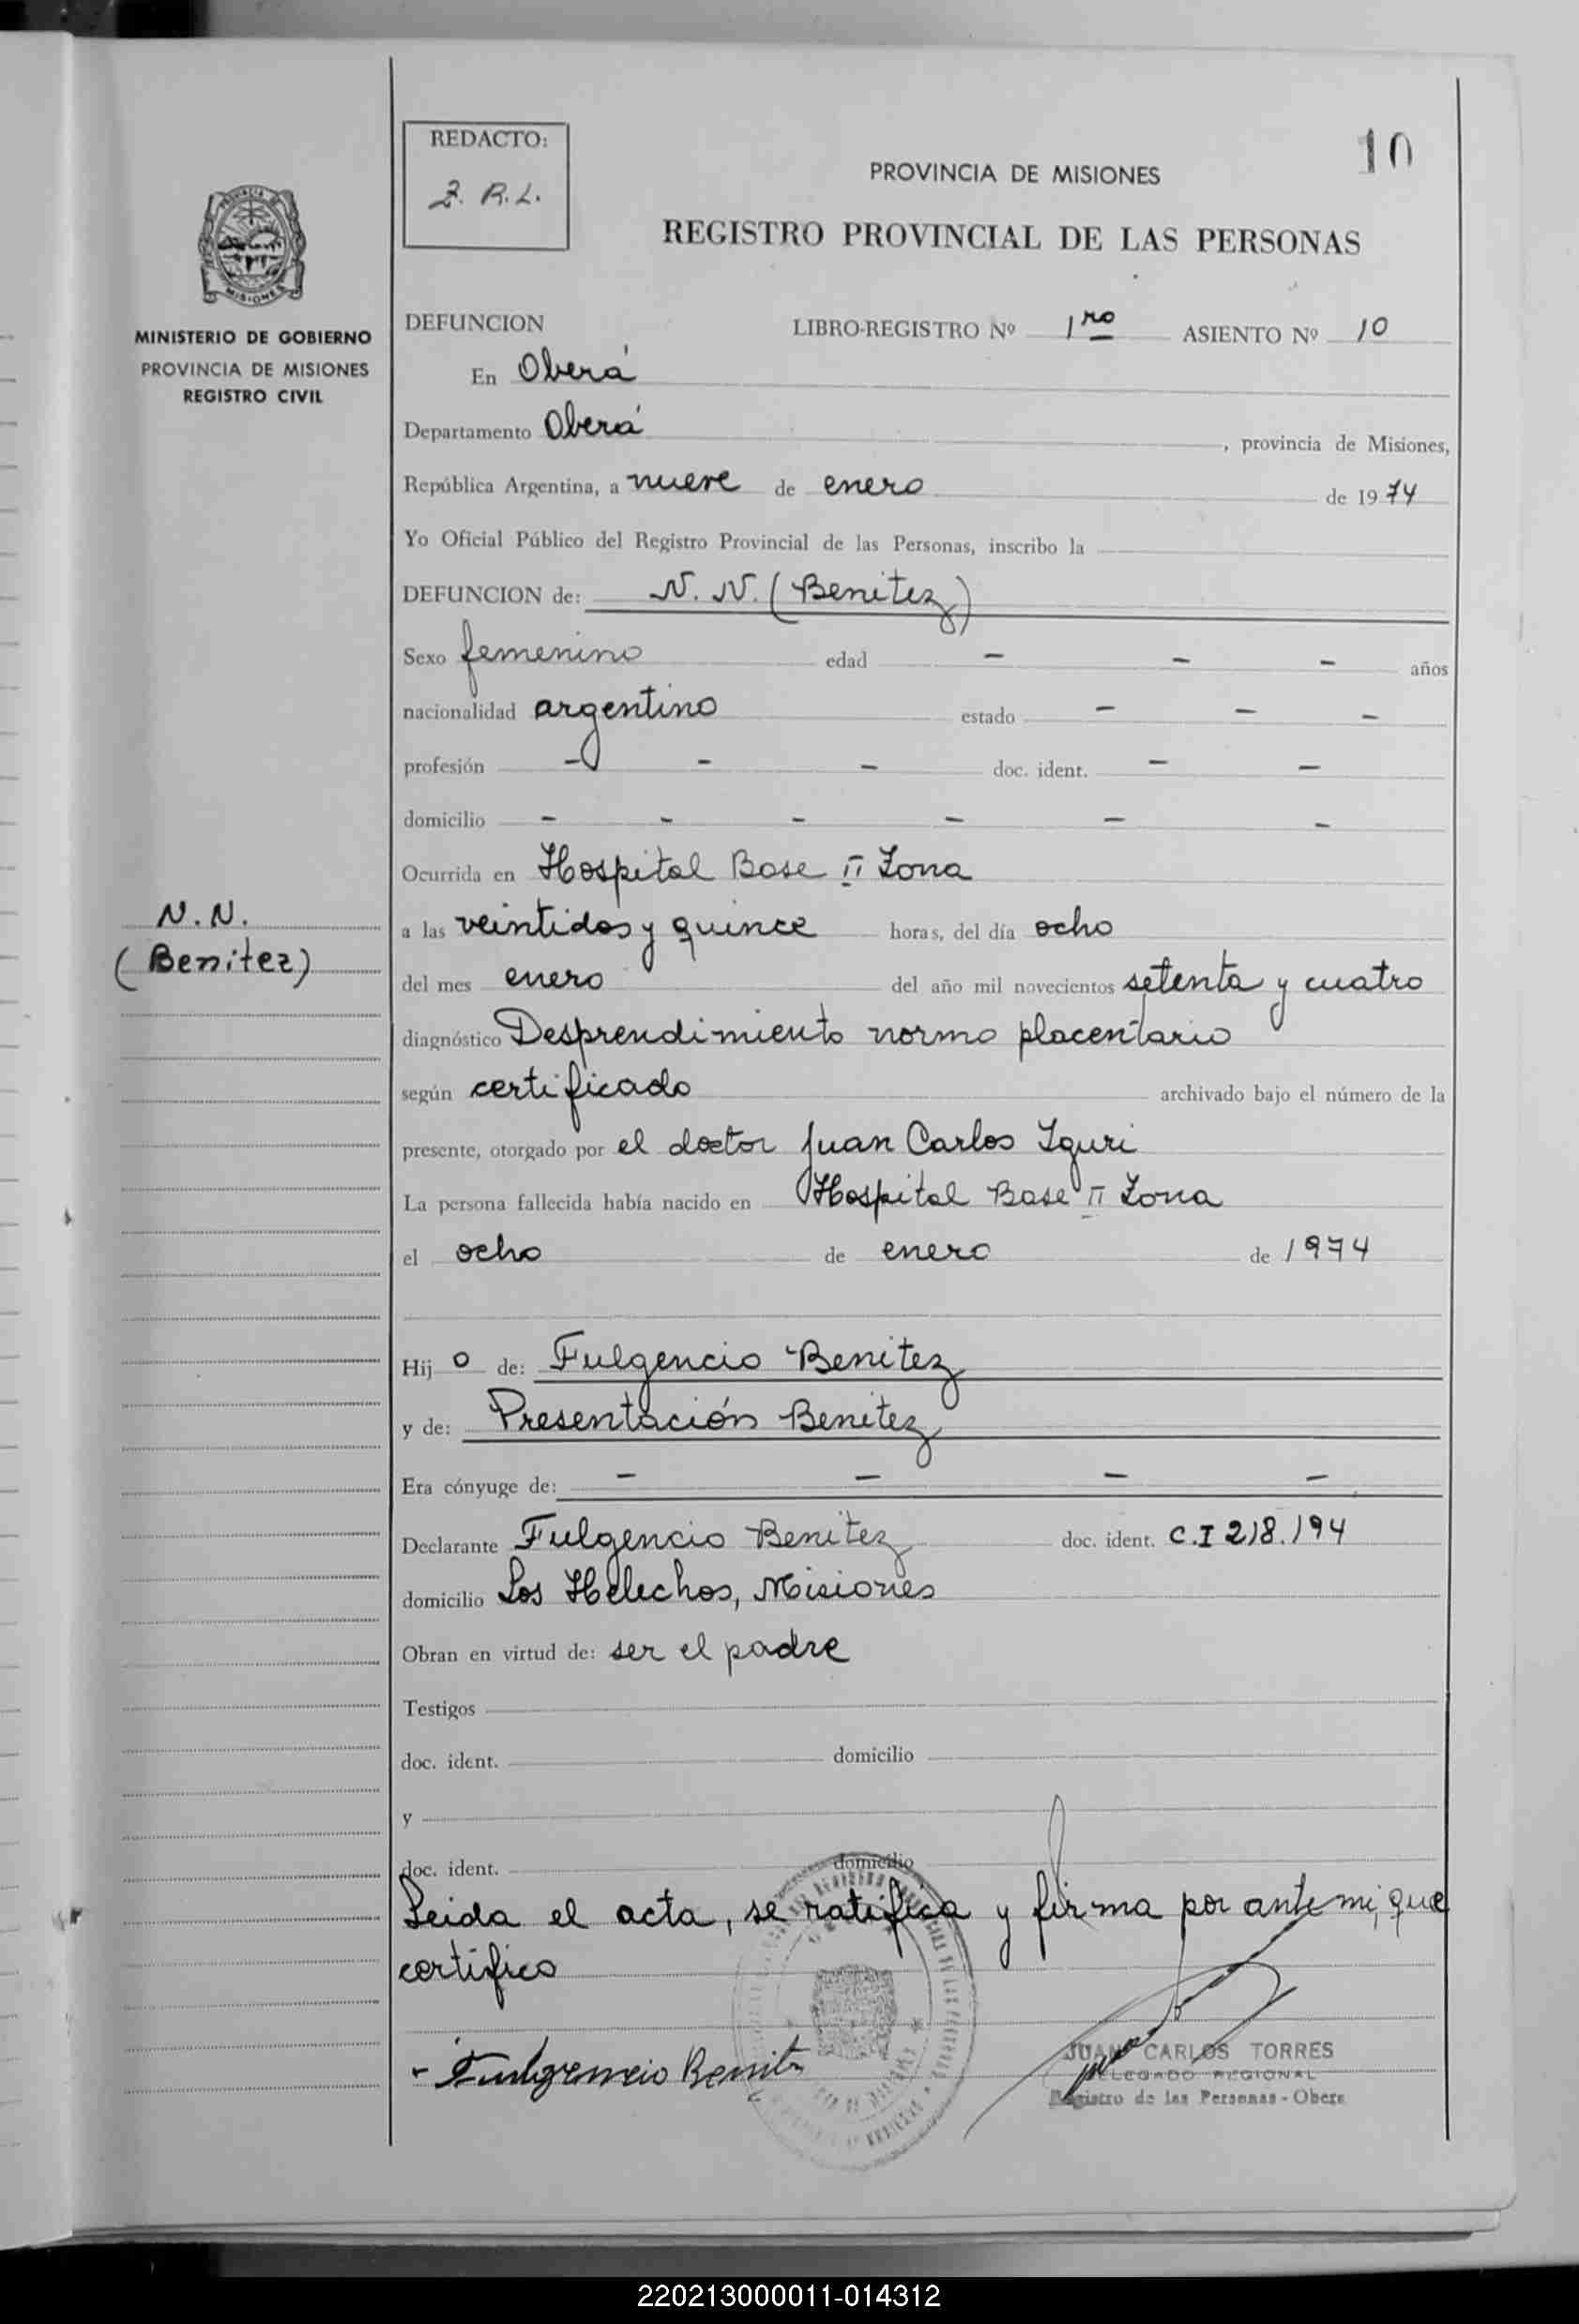 REDACTO:
Z. R. L.
10
PROVINCIA DE MISIONES
REGISTRO PROVINCIAL DE LAS PERSONAS
MISIONES
MINISTERIO DE GOBIERNO
PROVINCIA DE MISIONES
REGISTRO CIVIL
DEFUNCION LIBRO-REGISTRO Nº 1ro ASIENTO Nº 10
En Oberá
Departamento Oberá , provincia de Misiones,
República Argentina, a nueve de enero de 1974
Yo Oficial Público del Registro Provincial de las Personas, inscribo la
DEFUNCION de: N. N. (Benitez)
Sexo femenino edad - - - años
nacionalidad argentino estado - - -
profesión - - - doc. ident. - -
domicilio - - - - - -
Ocurrida en Hospital Base II Zona
N. N.
(Benitez)
a las veintidos y quince horas, del día ocho
del mes enero del año mil novecientos setenta y cuatro
diagnóstico Desprendimiento normo placentario
según certificado archivado bajo el número de la
presente, otorgado por el doctor Juan Carlos Iguri
La persona fallecida había nacido en Hospital Base II Zona
el ocho de enero de 1974
Hij o de: Fulgencio Benitez
y de: Presentación Benitez
Era cónyuge de: - - - -
Declarante Fulgencio Benitez doc. ident. C.I 218.194
domicilio Los Helechos, Misiones
Obran en virtud de: ser el padre
Testigos
doc. ident. domicilio
y
doc. ident. domicilio
Leida el acta, se ratifica y firma por ante mi, que
certifico
- Fulgencio Benitz
JUAN CARLOS TORRES
DELEGADO REGIONAL
Registro de las Personas - Obera
220213000011-014312